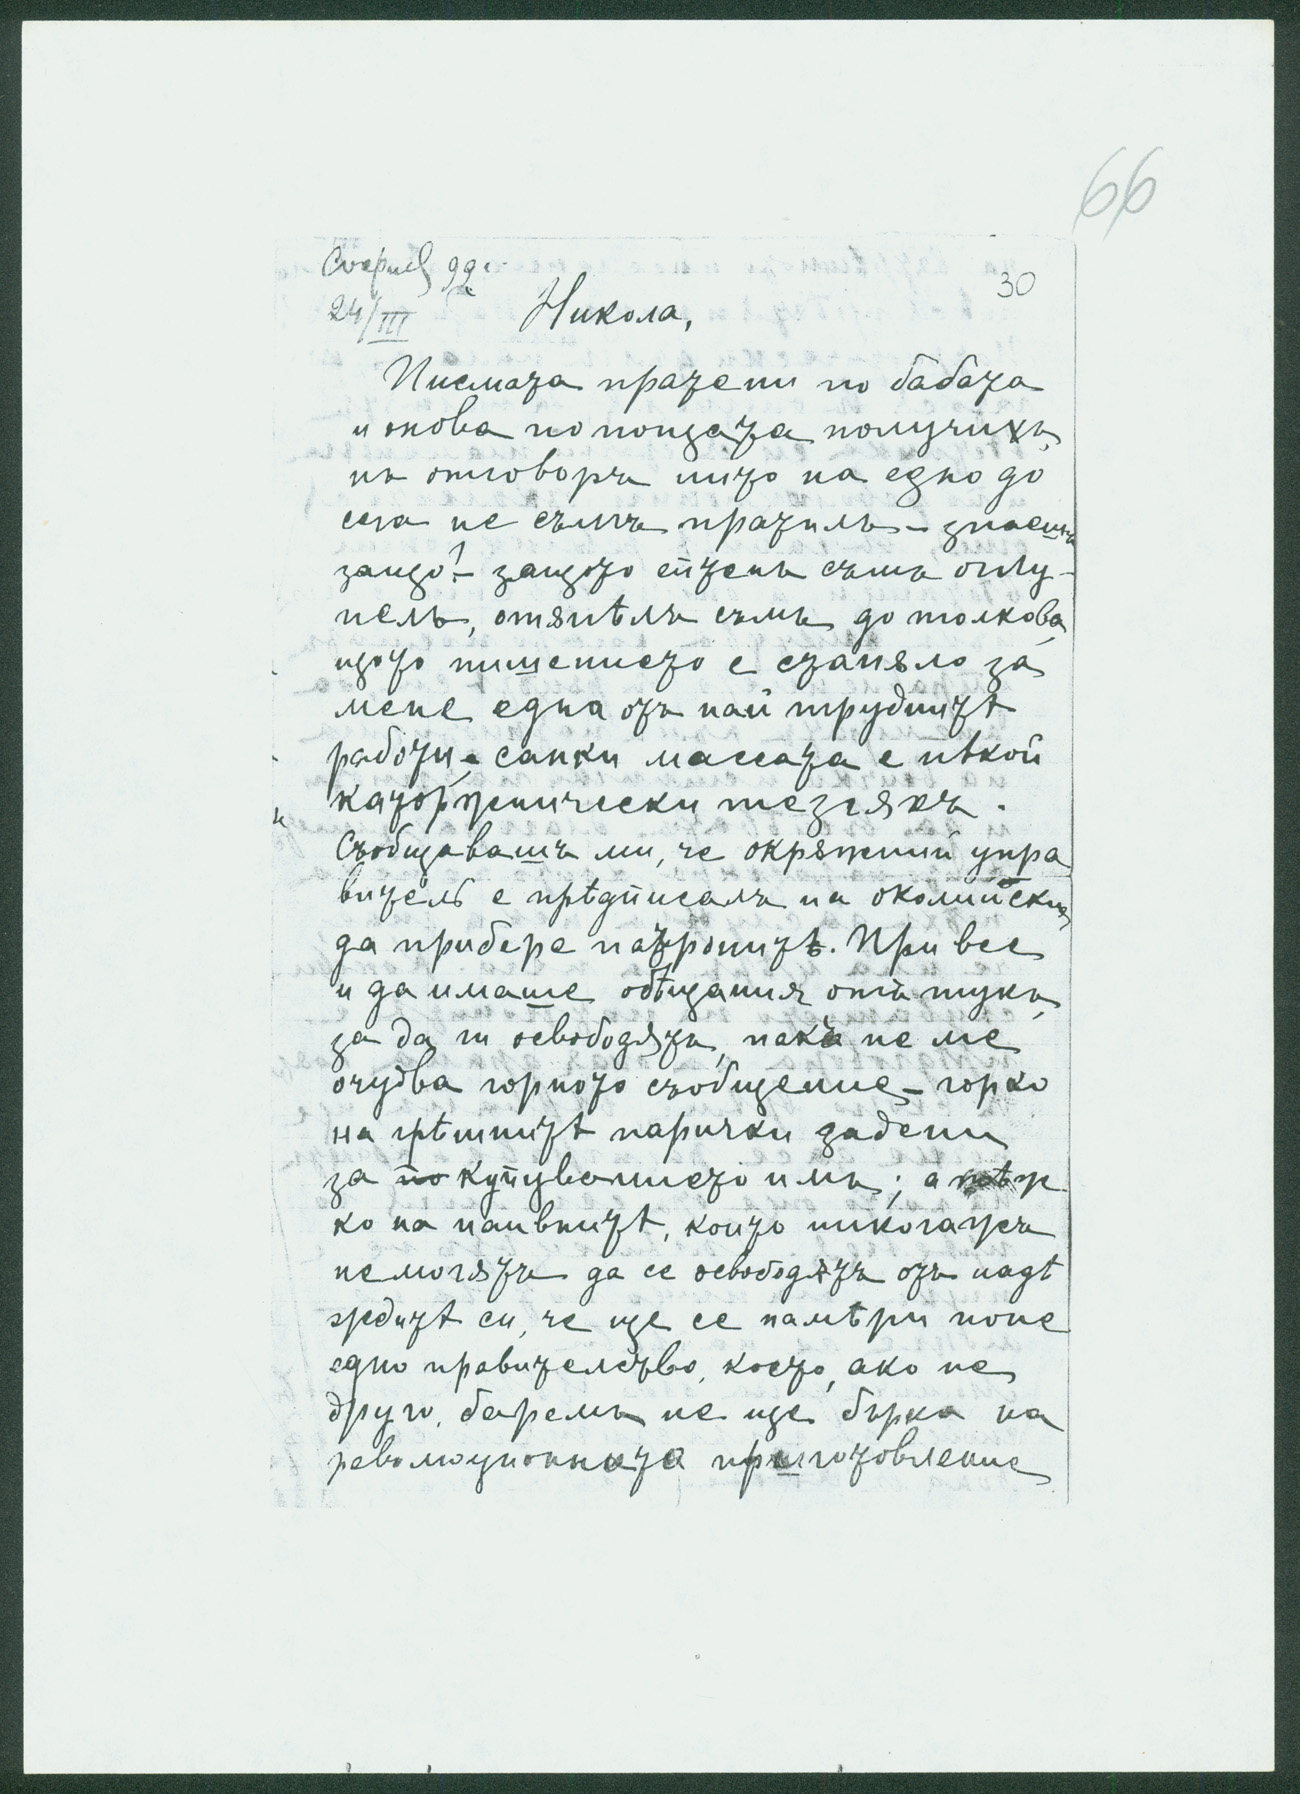 66
София 99 г.
30
24/III
Никола,
Писмата пратени по бабата
и онова по пощата получихъ,
нъ отговоръ нито на едно до
сега не съмъ пратилъ – знаешъ
защо? – защото ступенъ съмъ оглу-
пелъ, отѫпѣлъ съмъ до толкова,
щото пишението е станѫло за
мене една отъ най труднитѣ
работи, санки массата е нѣкой
каторжнически тезгѫхъ.
Съобщавашъ ми, че окрѫжний упра
витель е прѣдписалъ на околийския
да прибере патронитѣ. При все
и да имаше обѣщания отъ тукъ,
за да ги освободѫтъ, пакъ не ме
очудва горното съобщение – горко
на грѣшнитѣ парички задени
за покупуванието имъ; а горко
ко на наивнитѣ, които никогажъ
немогѫтъ да се освободѫтъ отъ надѣ
ждитѣ си, че ще се намѣри поне
едно правителство, което, ако не
друго, баремъ не ще бърка на
революционната приготовление